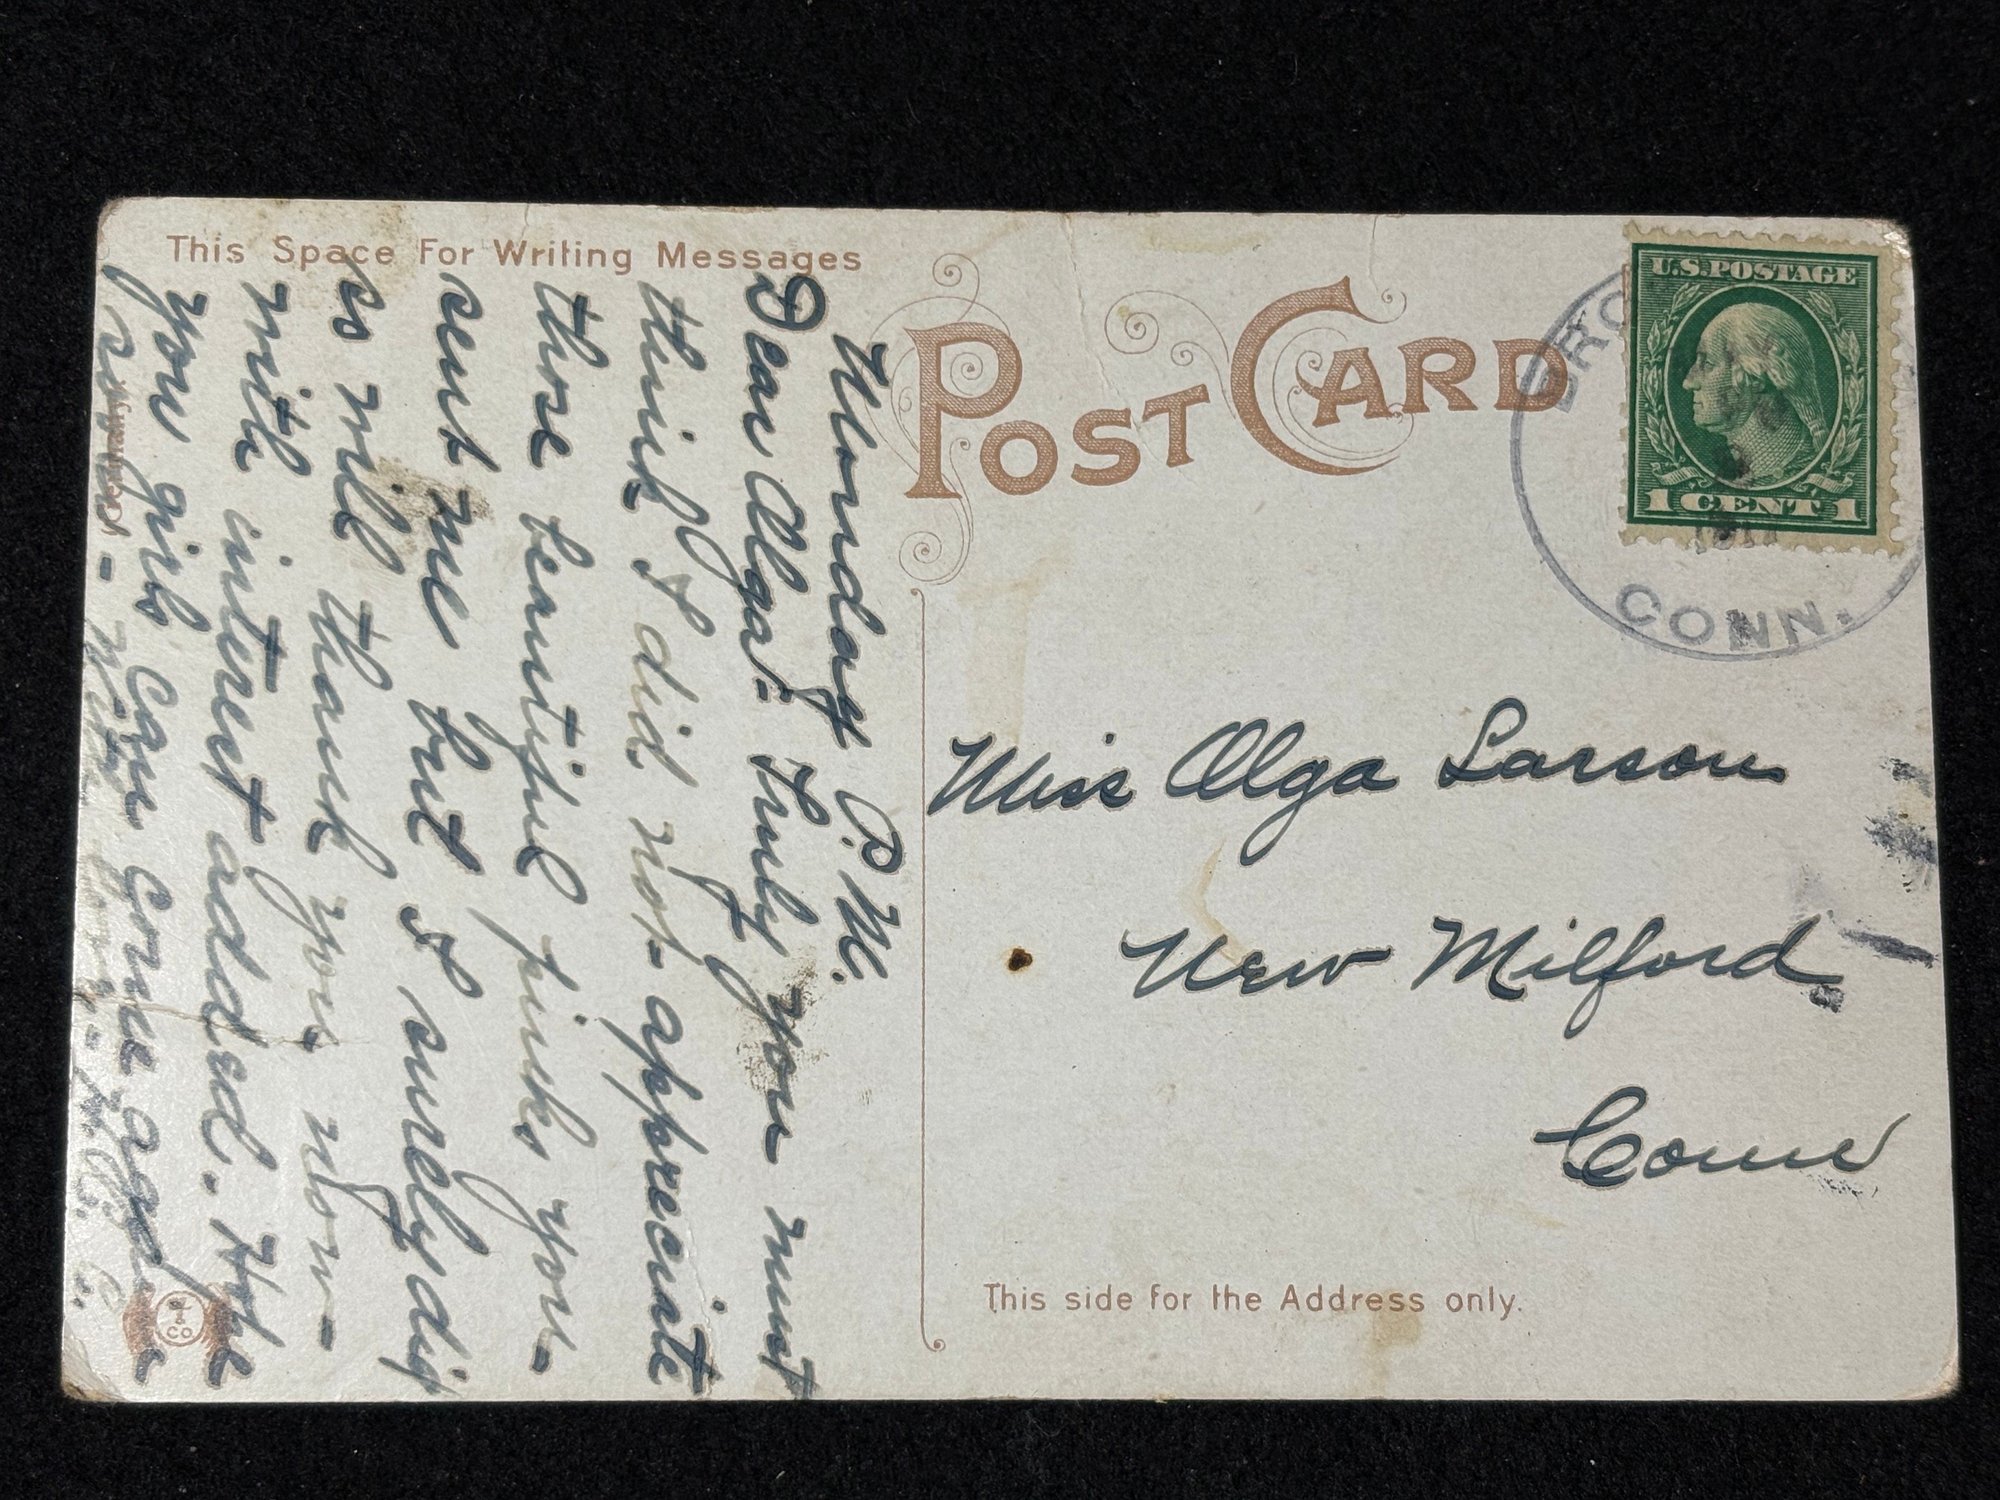 This Space For Writing Messages
POST CARD
U.S. POSTAGE
1 CENT 1
1917
CONN.
Monday P.M.
Dear Olga:- Truly you must
think I did not appreciate
those beautiful pinks you
sent me but I surely did
so will thank you now -
with interest added. Hope
you girls can come again
soon -
Germany
Miss Olga Larson
New Milford
Conn
This side for the Address only.